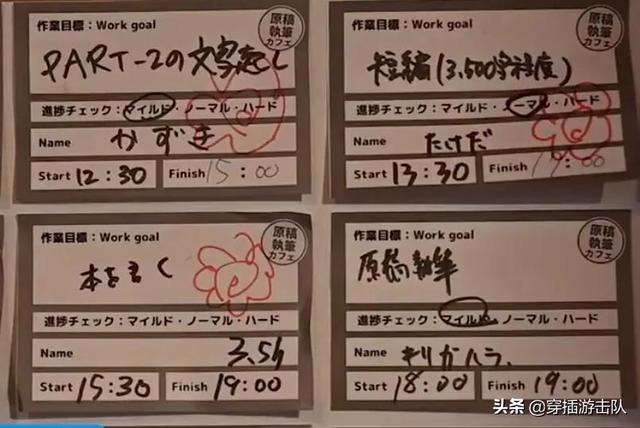 作業目標：Work goal
原稿執筆カフェ
PART-2の文字起し
進捗チェック：マイルド・ノーマル・ハード
Name かずき
Start 12:30 Finish 15:00
作業目標：Work goal
原稿執筆カフェ
短編(3,500字程度)
進捗チェック：マイルド・ノーマル・ハード
Name たけだ
Start 13:30 Finish 17:00
作業目標：Work goal
原稿執筆カフェ
本を書く
進捗チェック：マイルド・ノーマル・ハード
Name
Start 15:30 Finish 19:00
作業目標：Work goal
原稿執筆カフェ
原稿執筆
進捗チェック：マイルド・ノーマル・ハード
Name
Start 18:00 Finish 19:00
头条 @穿插游击队